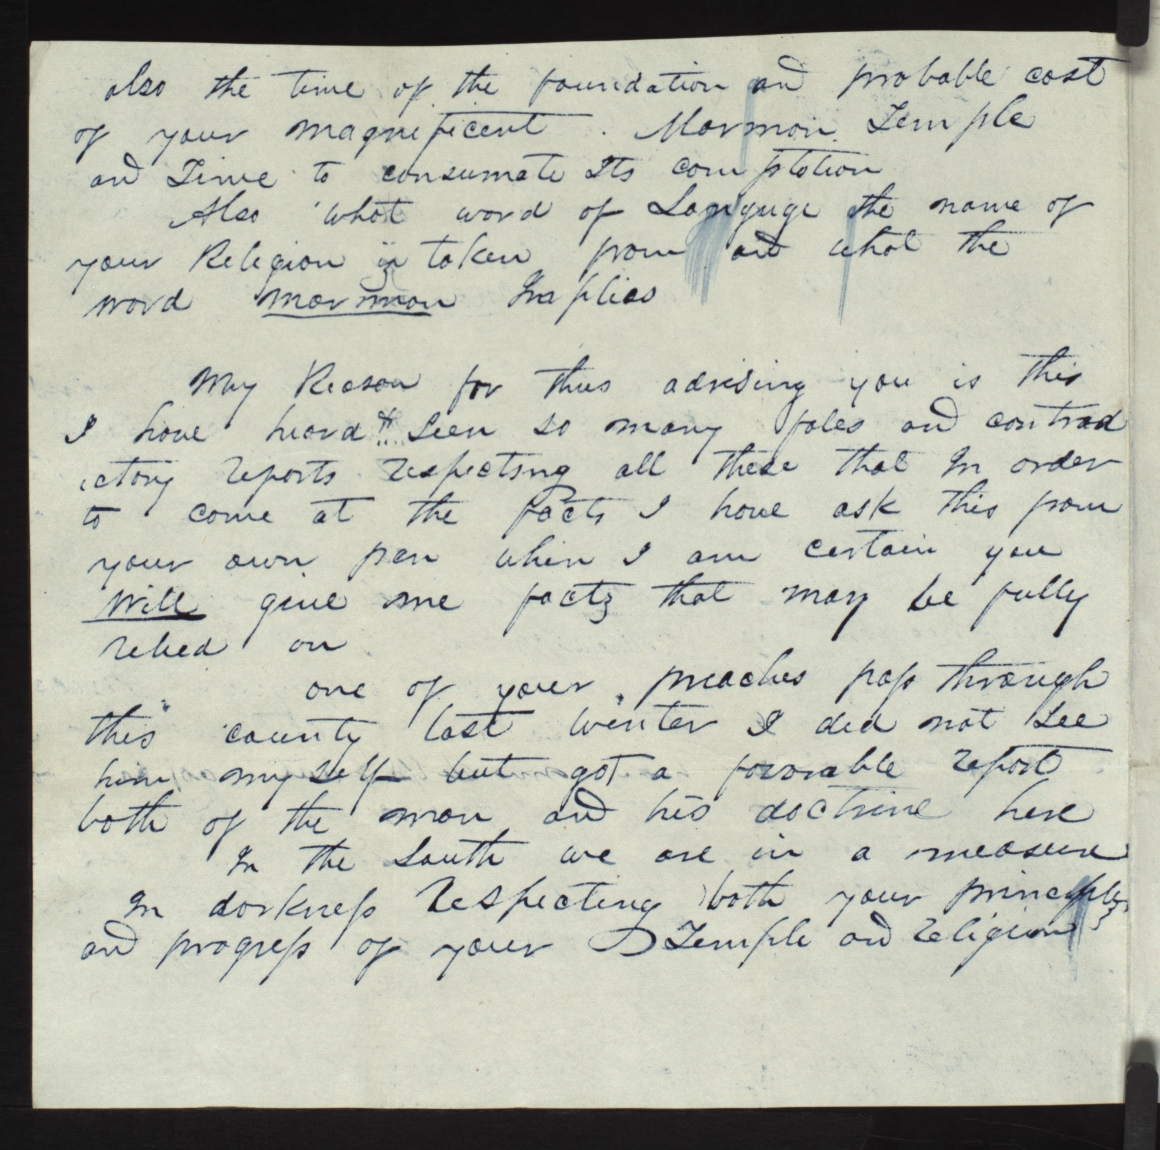 also the time of the foundation and probable cost
of your magnificent . Mormon Temple
and Time to consumate Its compltion
Also what word of Languge the name of
your Religion is taken from and what the
word mormon Implies
My Reason for thus advising you is this
I have heard & Seen so many fales and contrad
ictory reports respecting all these that In order
to come at the facts I have ask this from
your own pen when I am certain you
Will give me facts that may be fully
relied on
one of your preaches pass through
this county last winter I did not See
him my self but got a favorable report
both of the man and his doctrine here
In the South we are in a measure
In darkness Respecting both your principles
and progress of your Temple and religion